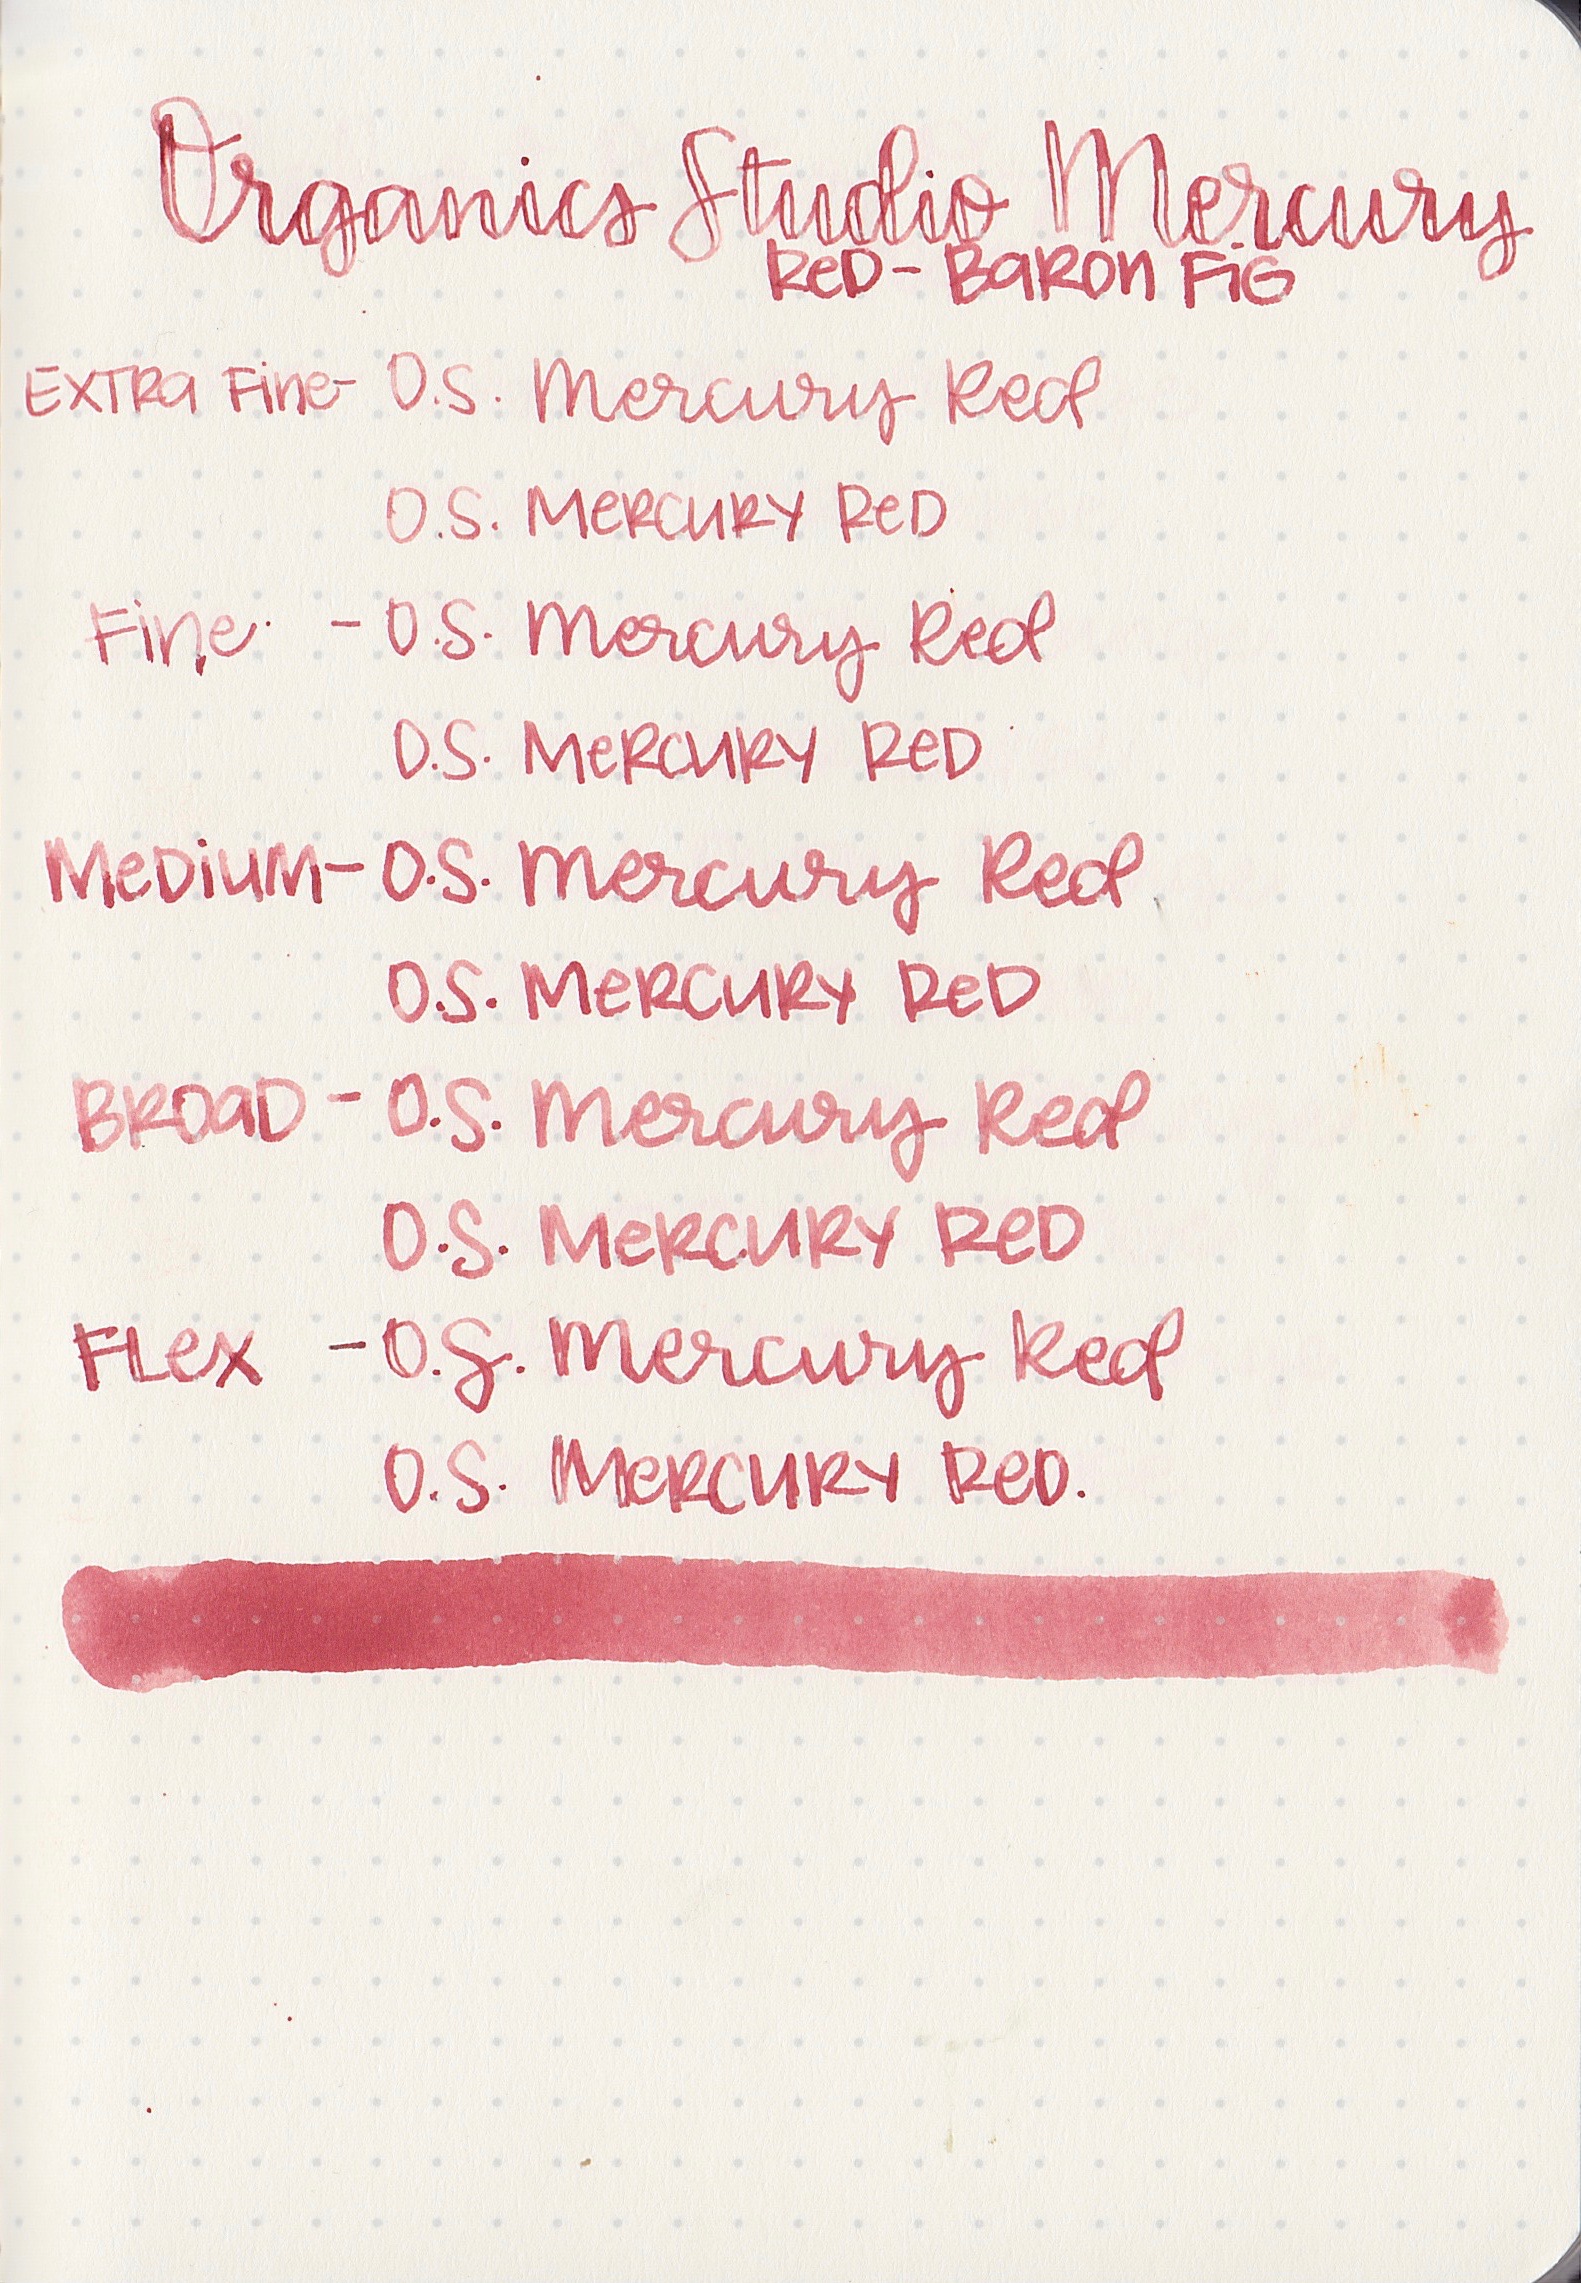 Organics Studio Mercury
Red - Baron Fig
Extra Fine - O.S. Mercury Red
O.S. Mercury Red
Fine - O.S. Mercury Red
O.S. Mercury Red
Medium - O.S. Mercury Red
O.S. Mercury Red
Broad - O.S. Mercury Red
O.S. Mercury Red
Flex - O.S. Mercury Red
O.S. Mercury Red.